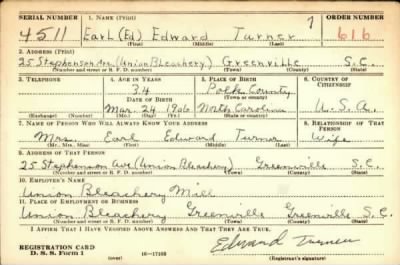 SERIAL NUMBER 1. NAME (Print) 1 ORDER NUMBER
4511 Earl (Ed) Edward Turner 616
(First) (Middle) (Last)
2. ADDRESS (Print)
25 Stephenson Ave (Union Bleachery) Greenville S.C.
(Number and street or R. F. D. number) (Town) (County) (State)
3. TELEPHONE 4. AGE IN YEARS 5. PLACE OF BIRTH 6. COUNTRY OF CITIZENSHIP
34 Polk County
DATE OF BIRTH (Town or county)
Mar. 24 1906 North Carolina U.S.A.
(Exchange) (Number) (Mo.) (Day) (Yr.) (State or country)
7. NAME OF PERSON WHO WILL ALWAYS KNOW YOUR ADDRESS 8. RELATIONSHIP OF THAT PERSON
Mrs. Earl Edward Turner Wife
(Mr., Mrs., Miss) (First) (Middle) (Last)
9. ADDRESS OF THAT PERSON
25 Stephenson Ave (Union Bleachery) Greenville S.C.
(Number and street or R. F. D. number) (Town) (County) (State)
10. EMPLOYER'S NAME
Union Bleachery Mill
11. PLACE OF EMPLOYMENT OR BUSINESS
Union Bleachery Greenville Greenville S.C.
(Number and street or R. F. D. number) (Town) (County) (State)
I AFFIRM THAT I HAVE VERIFIED ABOVE ANSWERS AND THAT THEY ARE TRUE.
REGISTRATION CARD Edward Turner
D. S. S. Form 1 (over) (Registrant's signature)